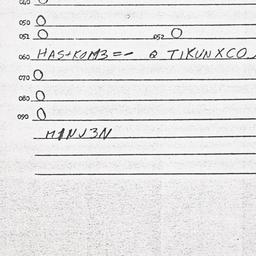 040 0
050 0
051 0 052 0
060 HAS+KOM3=- Q TIKUNXCO
070 0
080 0
090 0
M1NJ3N